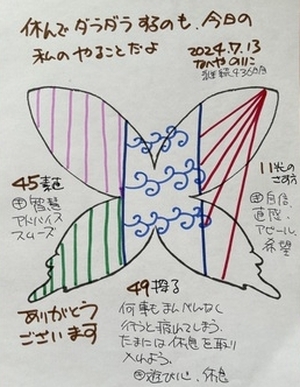 休んでダラダラするのも、今日の
私のやることだよ
2024.7.13
11光の
さす方
⊕自信、
直感、
アピール、
希望
45素直
⊕智慧
アドバイス
スムーズ
49操る
何事もまんべんなく
行うと疲れてしまう。
たまには休息を取り
入れよう。
⊕遊び心、休息
ありがとう
ございます